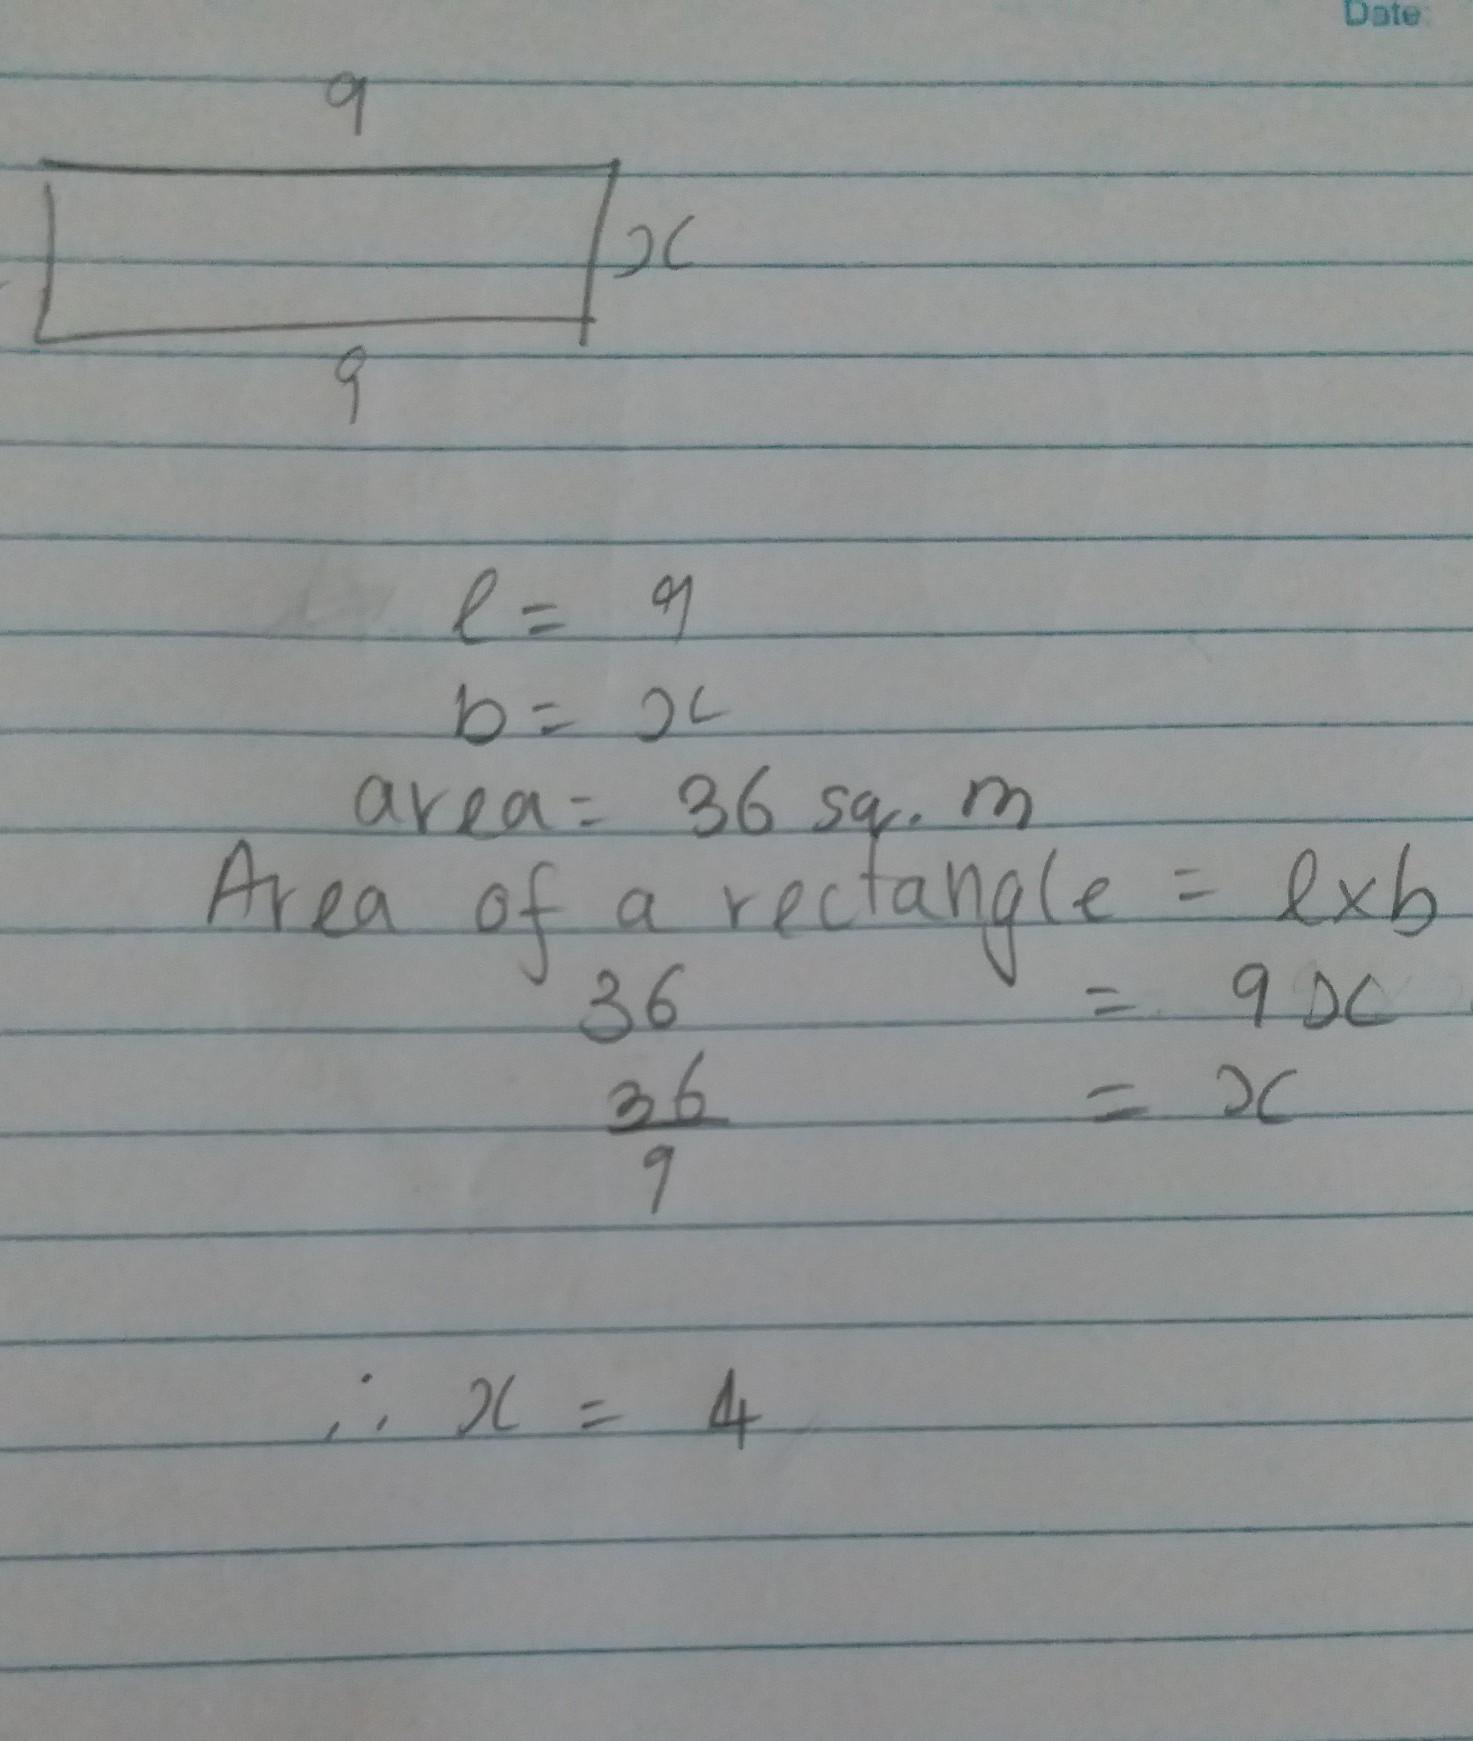 Date
9
x
9
l = 9
b = x
area = 36 sq. m
Area of a rectangle = l×b
36 = 9x
36/9 = x
∴ x = 4